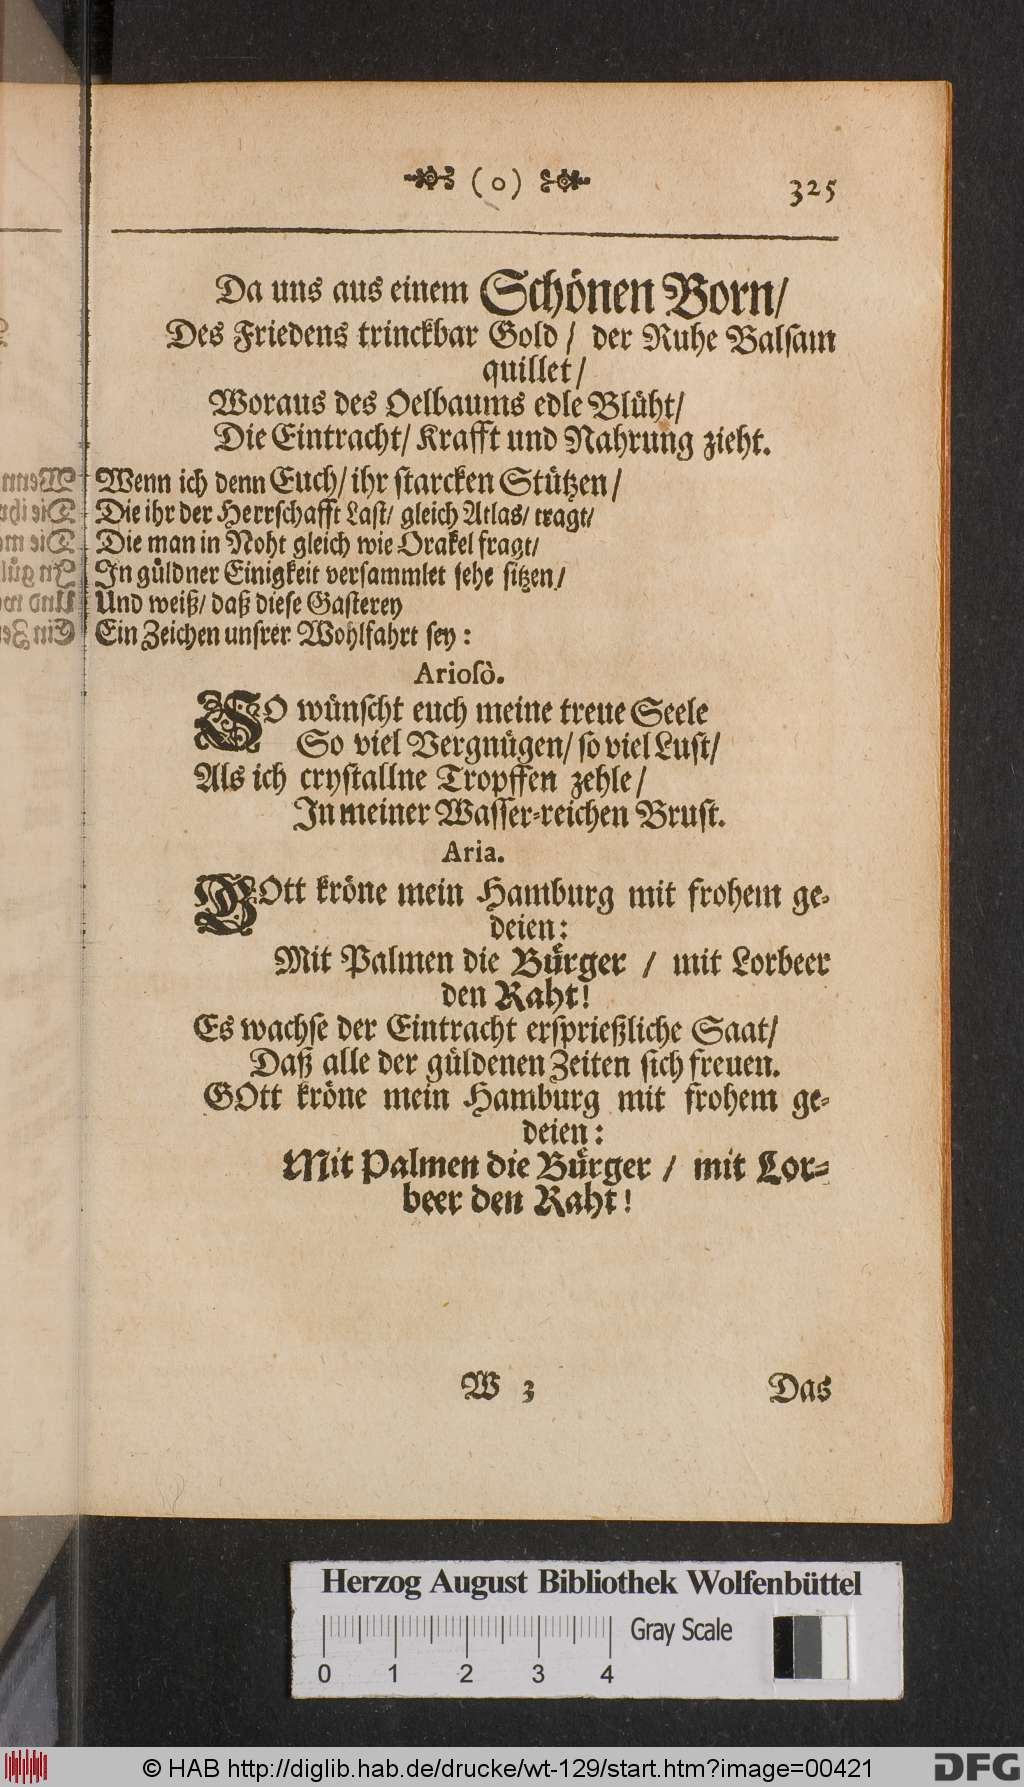 (o) 325
Da uns aus einem Schönen Born/
Des Friedens trinckbar Gold / der Ruhe Balsam
quillet/
Woraus des Oelbaums edle Blüht/
Die Eintracht/ Krafft und Nahrung zieht.
Wenn ich denn Euch/ ihr starcken Stützen/
Die ihr der Herrschafft Last/ gleich Atlas/ tragt/
Die man in Noht gleich wie Orakel fragt/
In güldner Einigkeit versammlet sehe sitzen/
Und weiß/ daß diese Gasterey
Ein Zeichen unsrer Wohlfahrt sey:
Ariosò.
SO wünscht euch meine treue Seele
So viel Vergnügen/ so viel Lust/
Als ich crystallne Tropffen zehle/
In meiner Wasser-reichen Brust.
Aria.
GOtt kröne mein Hamburg mit frohem ge-
deien:
Mit Palmen die Bürger / mit Lorbeer
den Raht!
Es wachse der Eintracht ersprießliche Saat/
Daß alle der güldenen Zeiten sich freuen.
GOtt kröne mein Hamburg mit frohem ge-
deien:
Mit Palmen die Bürger / mit Lor-
beer den Raht!
W 3 Das
Herzog August Bibliothek Wolfenbüttel
Gray Scale
0 1 2 3 4
© HAB http://diglib.hab.de/drucke/wt-129/start.htm?image=00421
DFG